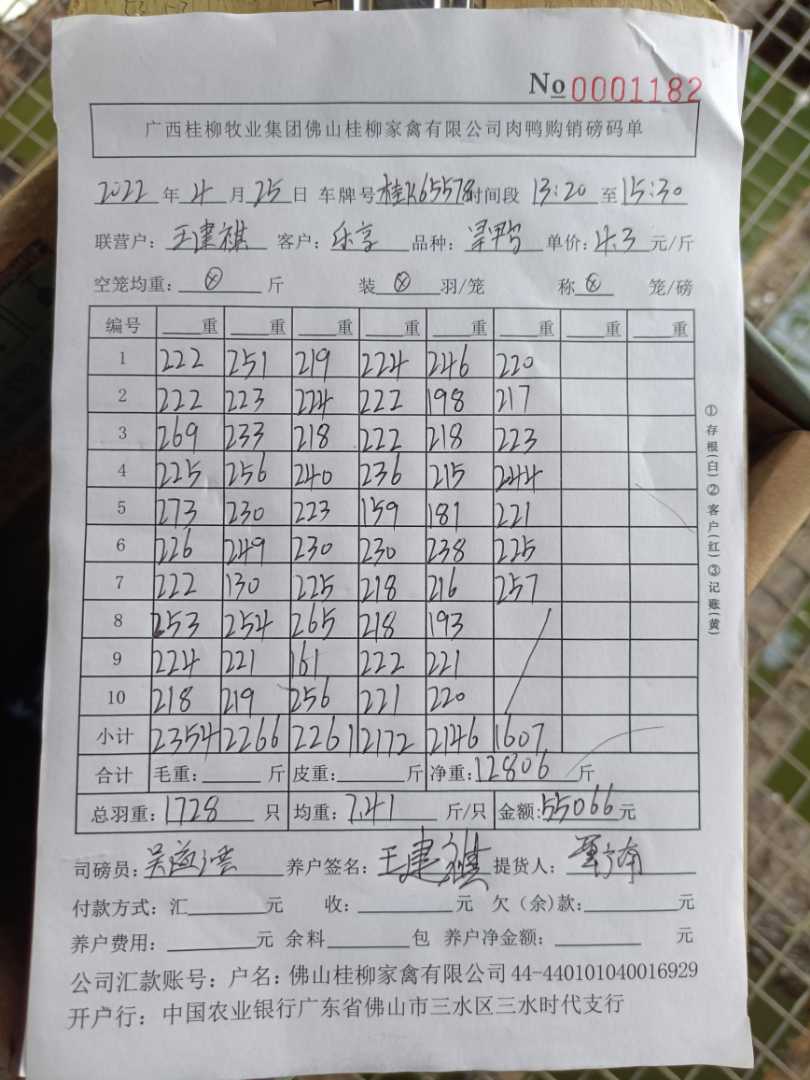 No 0001182
广西桂柳牧业集团佛山桂柳家禽有限公司肉鸭购销磅码单
2022 年 4 月 25 日 车牌号 桂K65578 时间段 13:20 至 15:30
联营户: 王建祺 客户: 乐享 品种: 单价: 4.3 元/斤
空笼均重: ⊗ 斤 装 ⊗ 羽/笼 称 ⊗ 笼/磅
编号 重 重 重 重 重 重 重 重
1 222 251 219 224 246 220
2 222 223 224 222 198 217
3 269 233 218 222 218 223
4 225 256 240 236 215 244
5 273 230 223 159 181 221
6 226 249 230 230 238 225
7 222 130 225 218 216 257
8 253 254 265 218 193
9 224 221 161 222 221
10 218 219 256 221 220
小计 2354 2266 2261 2172 2146 1607
合计 毛重: 斤 皮重: 斤 净重: 12806 斤
总羽重: 1728 只 均重: 7.41 斤/只 金额: 55066 元
司磅员: 养户签名: 王建祺 提货人:
付款方式: 汇 元 收: 元 欠(余)款: 元
养户费用: 元 余料 包 养户净金额: 元
公司汇款账号: 户名: 佛山桂柳家禽有限公司 44-440101040016929
开户行: 中国农业银行广东省佛山市三水区三水时代支行
①存根(白)②客户(红)③记账(黄)